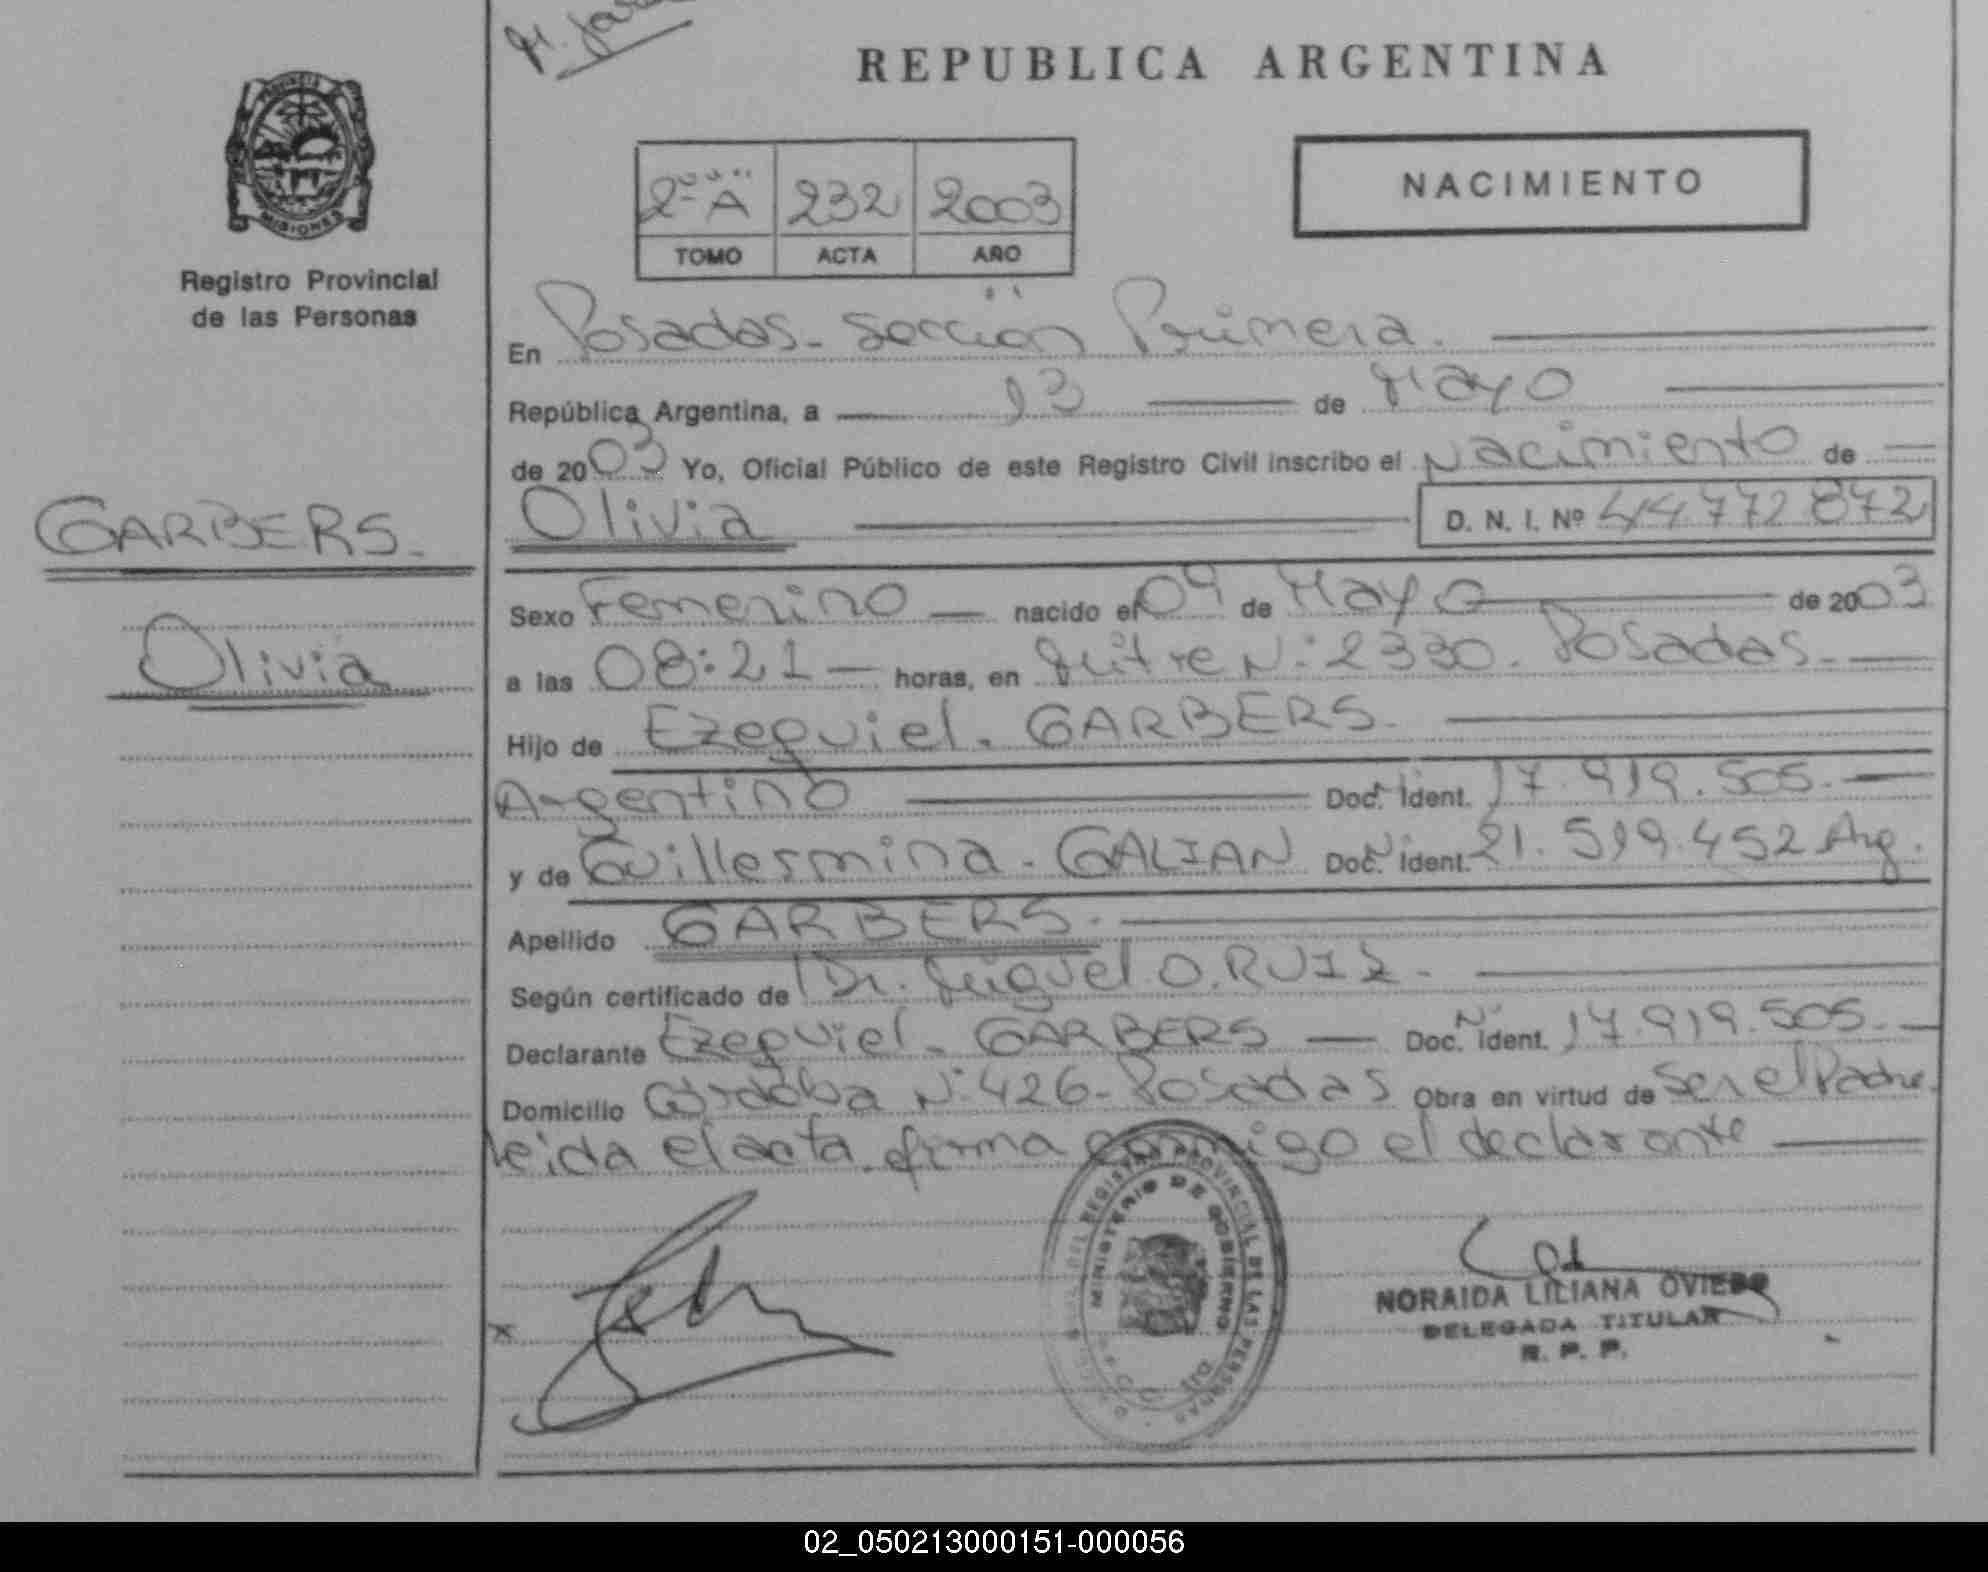 REPUBLICA ARGENTINA
PROVINCIA
MISIONES
Registro Provincial
de las Personas
2º "A" 232 2003
TOMO ACTA AÑO
NACIMIENTO
En Posadas - Sección Primera.
República Argentina, a 13 de Mayo
de 2003 Yo, Oficial Público de este Registro Civil inscribo el Nacimiento de
GARBERS.
Olivia
Olivia D. N. I. Nº 44.772.872
Sexo Femenino nacido el 09 de Mayo de 2003
a las 08:21 horas, en Mitre Nº 2330. Posadas.
Hijo de Ezequiel. GARBERS.
Argentino Doc. Nº Ident. 17.919.505.
y de Guillermina. GALIAN Doc. Nº Ident. 21.519.452 Arg.
Apellido GARBERS.
Según certificado de Dr. Miguel O. RUIZ.
Declarante Ezequiel. GARBERS Doc. Nº Ident. 17.919.505.
Domicilio Córdoba Nº 426 - Posadas Obra en virtud de ser el Padre.
leida el acta firma conmigo el declarante
REGISTRO PROVINCIAL DE LAS PERSONAS
MINISTERIO DE GOBIERNO
NORAIDA LILIANA OVIEDO
DELEGADA TITULAR
R. P. P.
02_050213000151-000056